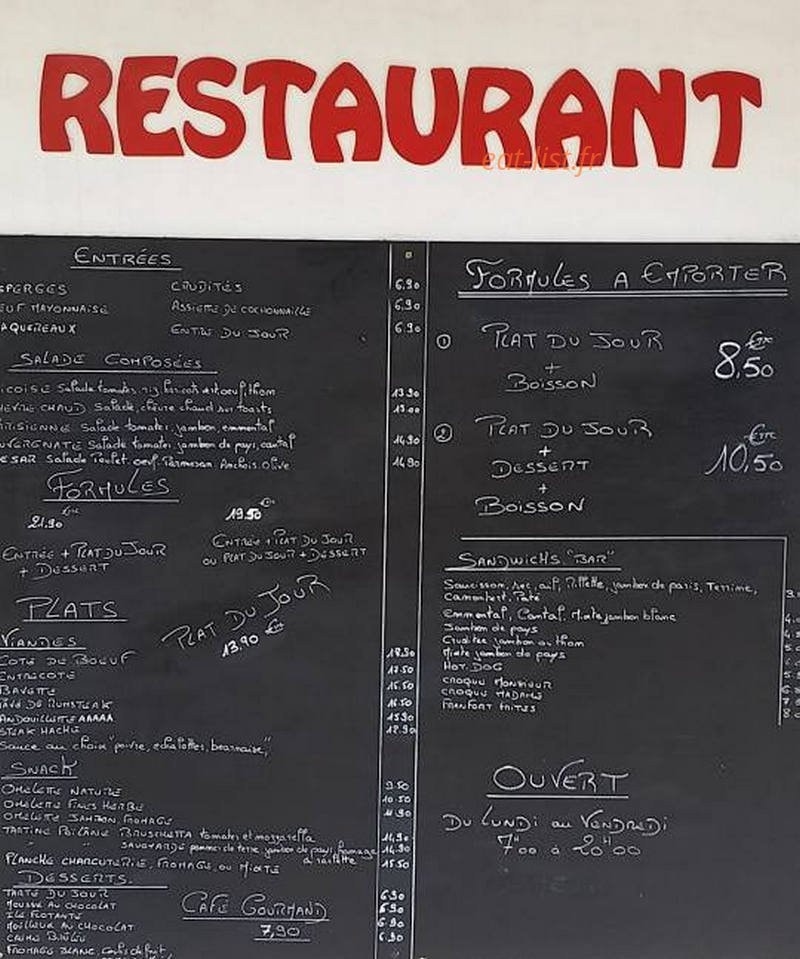 RESTAURANT
eat-list.fr
ENTRÉES
SPERGES CRUDITÉS 6,90
EUF MAYONNAISE ASSIETTE DE COCHONNAILLE 6,90
AQUEREAUX ENTRE DU JOUR 6,90
SALADE COMPOSÉES
ICOISE Salade tomates, riz haricots vert oeuf, thon 13.90
HEVRE CHAUD Salade, chèvre chaud sur toasts
RISIENNE Salade tomates, jambon, emmental
UVERGNATE Salade tomates jambon de pays, cantal 14,90
ESAR Salade Poulet, oeuf, Parmesan, Anchois, Olive 14,90
FORMULES
21.90 19.50
ENTRÉE + PLAT DU JOUR
+ DESSERT
ENTRÉE + PLAT DU JOUR
OU PLAT DU JOUR + DESSERT
PLATS
PLAT DU JOUR
13.90 €
VIANDES
COTE DE BOEUF 18.90
ENTRECOTE 17.50
BAVETTE 15.50
PAVÉ DE RUMSTEAK 16.50
ANDOUILLETTE AAAAA 15.90
STEAK HACHÉ 12.90
Sauce au choix "poivre, echalottes, bearnaise"
SNACK
OMELETTE NATURE 9.50
OMELETTE FINES HERBE 10.50
OMELETTE JAMBON, FROMAGE 11.90
TARTINE POILÂNE BRUSCHETTA tomates et mozzarella 14,90
" " SAVOYARDE pommes de terre, jambon de pays, fromage 14.90
à raclette
PLANCHE CHARCUTERIE, FROMAGE, OU MIXTE 15.50
DESSERTS
TARTE DU JOUR 6.90
MOUSSE AU CHOCOLAT 6.90
ILE FLOTANTE 6.90
MOILLEUX AU CHOCOLAT 6.90
CRÈME BRULÉE 6.90
FROMAGE BLANC, coulis de fruit
CAFÉ GOURMAND
7,90
FORMULES A EMPORTER
① PLAT DU JOUR
+
BOISSON
8,50
② PLAT DU JOUR
+
DESSERT
+
BOISSON
10,50
SANDWICHS "BAR"
Saucisson, sec, ail, Rillette, jambon de paris, Terrine,
Camembert, Paté
Emmental, Cantal, Mixte jambon blanc
Jambon de pays
Crudités jambon ou thon
Mixte jambon de pays
HOT DOG
CROQUE MONSIEUR
CROQUE MADAME
FRANFORT FRITES
OUVERT
DU LUNDI au VENDREDI
7H00 à 20H00